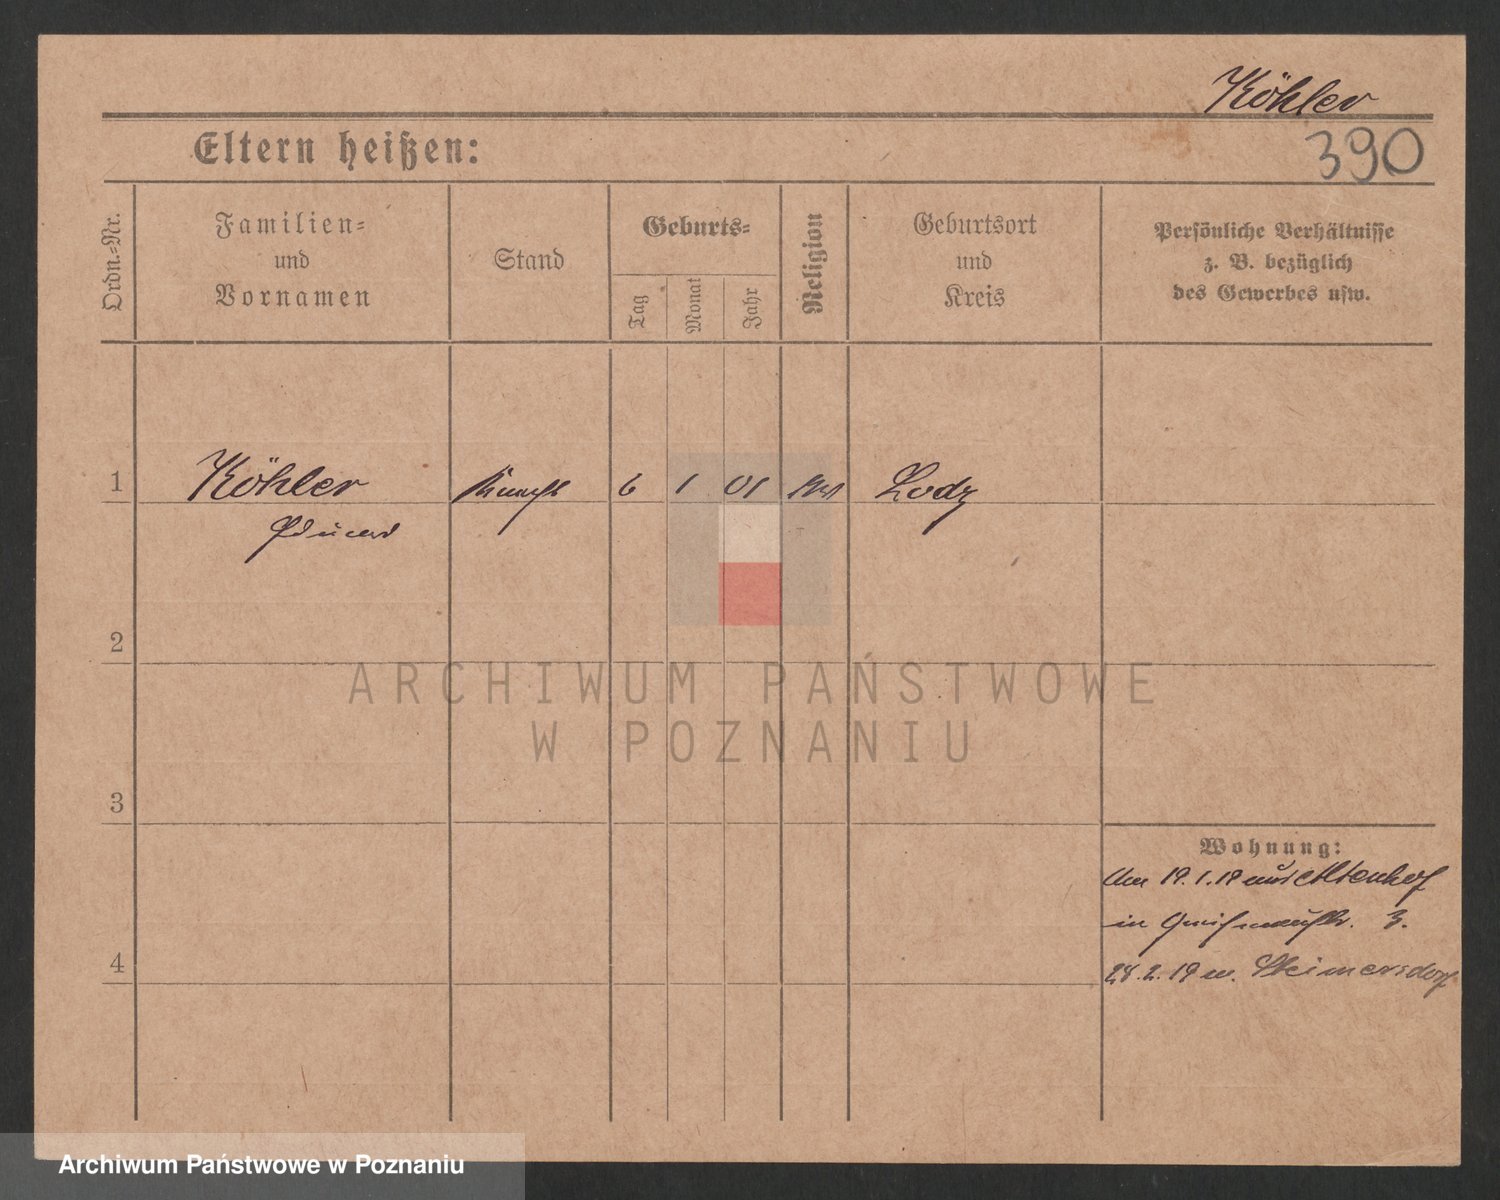 Köhler
390
Eltern heißen:
Ordn.-Nr.
Familien-
und
Vornamen
Stand
Geburts-
Tag
Monat
Jahr
Religion
Geburtsort
und
Kreis
Persönliche Verhältnisse
z. B. bezüglich
des Gewerbes usw.
1
Köhler
6
1
01
Lodz
Eduard
2
ARCHIWUM PAŃSTWOWE
W POZNANIU
3
Wohnung:
Am 19.1.19 aus Altenhof
in 3.
4
28.2.19 n.
Archiwum Państwowe w Poznaniu